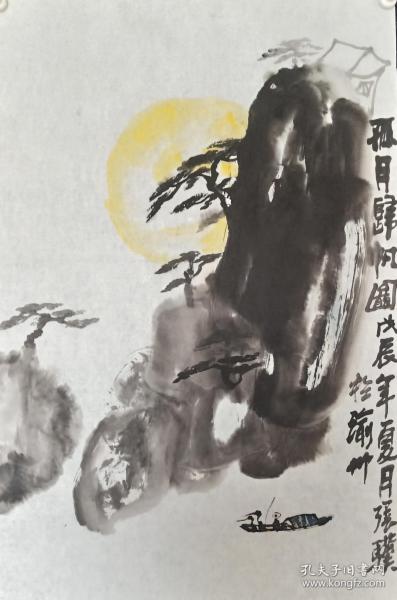 孤月歸帆圖戊辰年夏月張驥
於渝州
孔夫子旧书网
www.kongfz.com